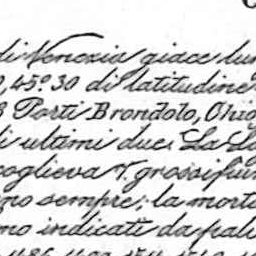 di Venezia giace lun
, 45° 30 di latitudine
3 Porti Brondolo, Chio
li ultimi due. La La
coglieva 7. grossi fiu
no sempre; la morta
no indicati da palu